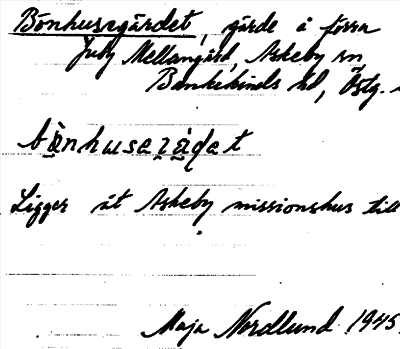 Bönhusegärdet, gärde å förra
Juby Mellangård, Askeby sn
Bankekinds hd, Östg.
Ligger åt Askeby missionshus till
Maja Nordlund 1945